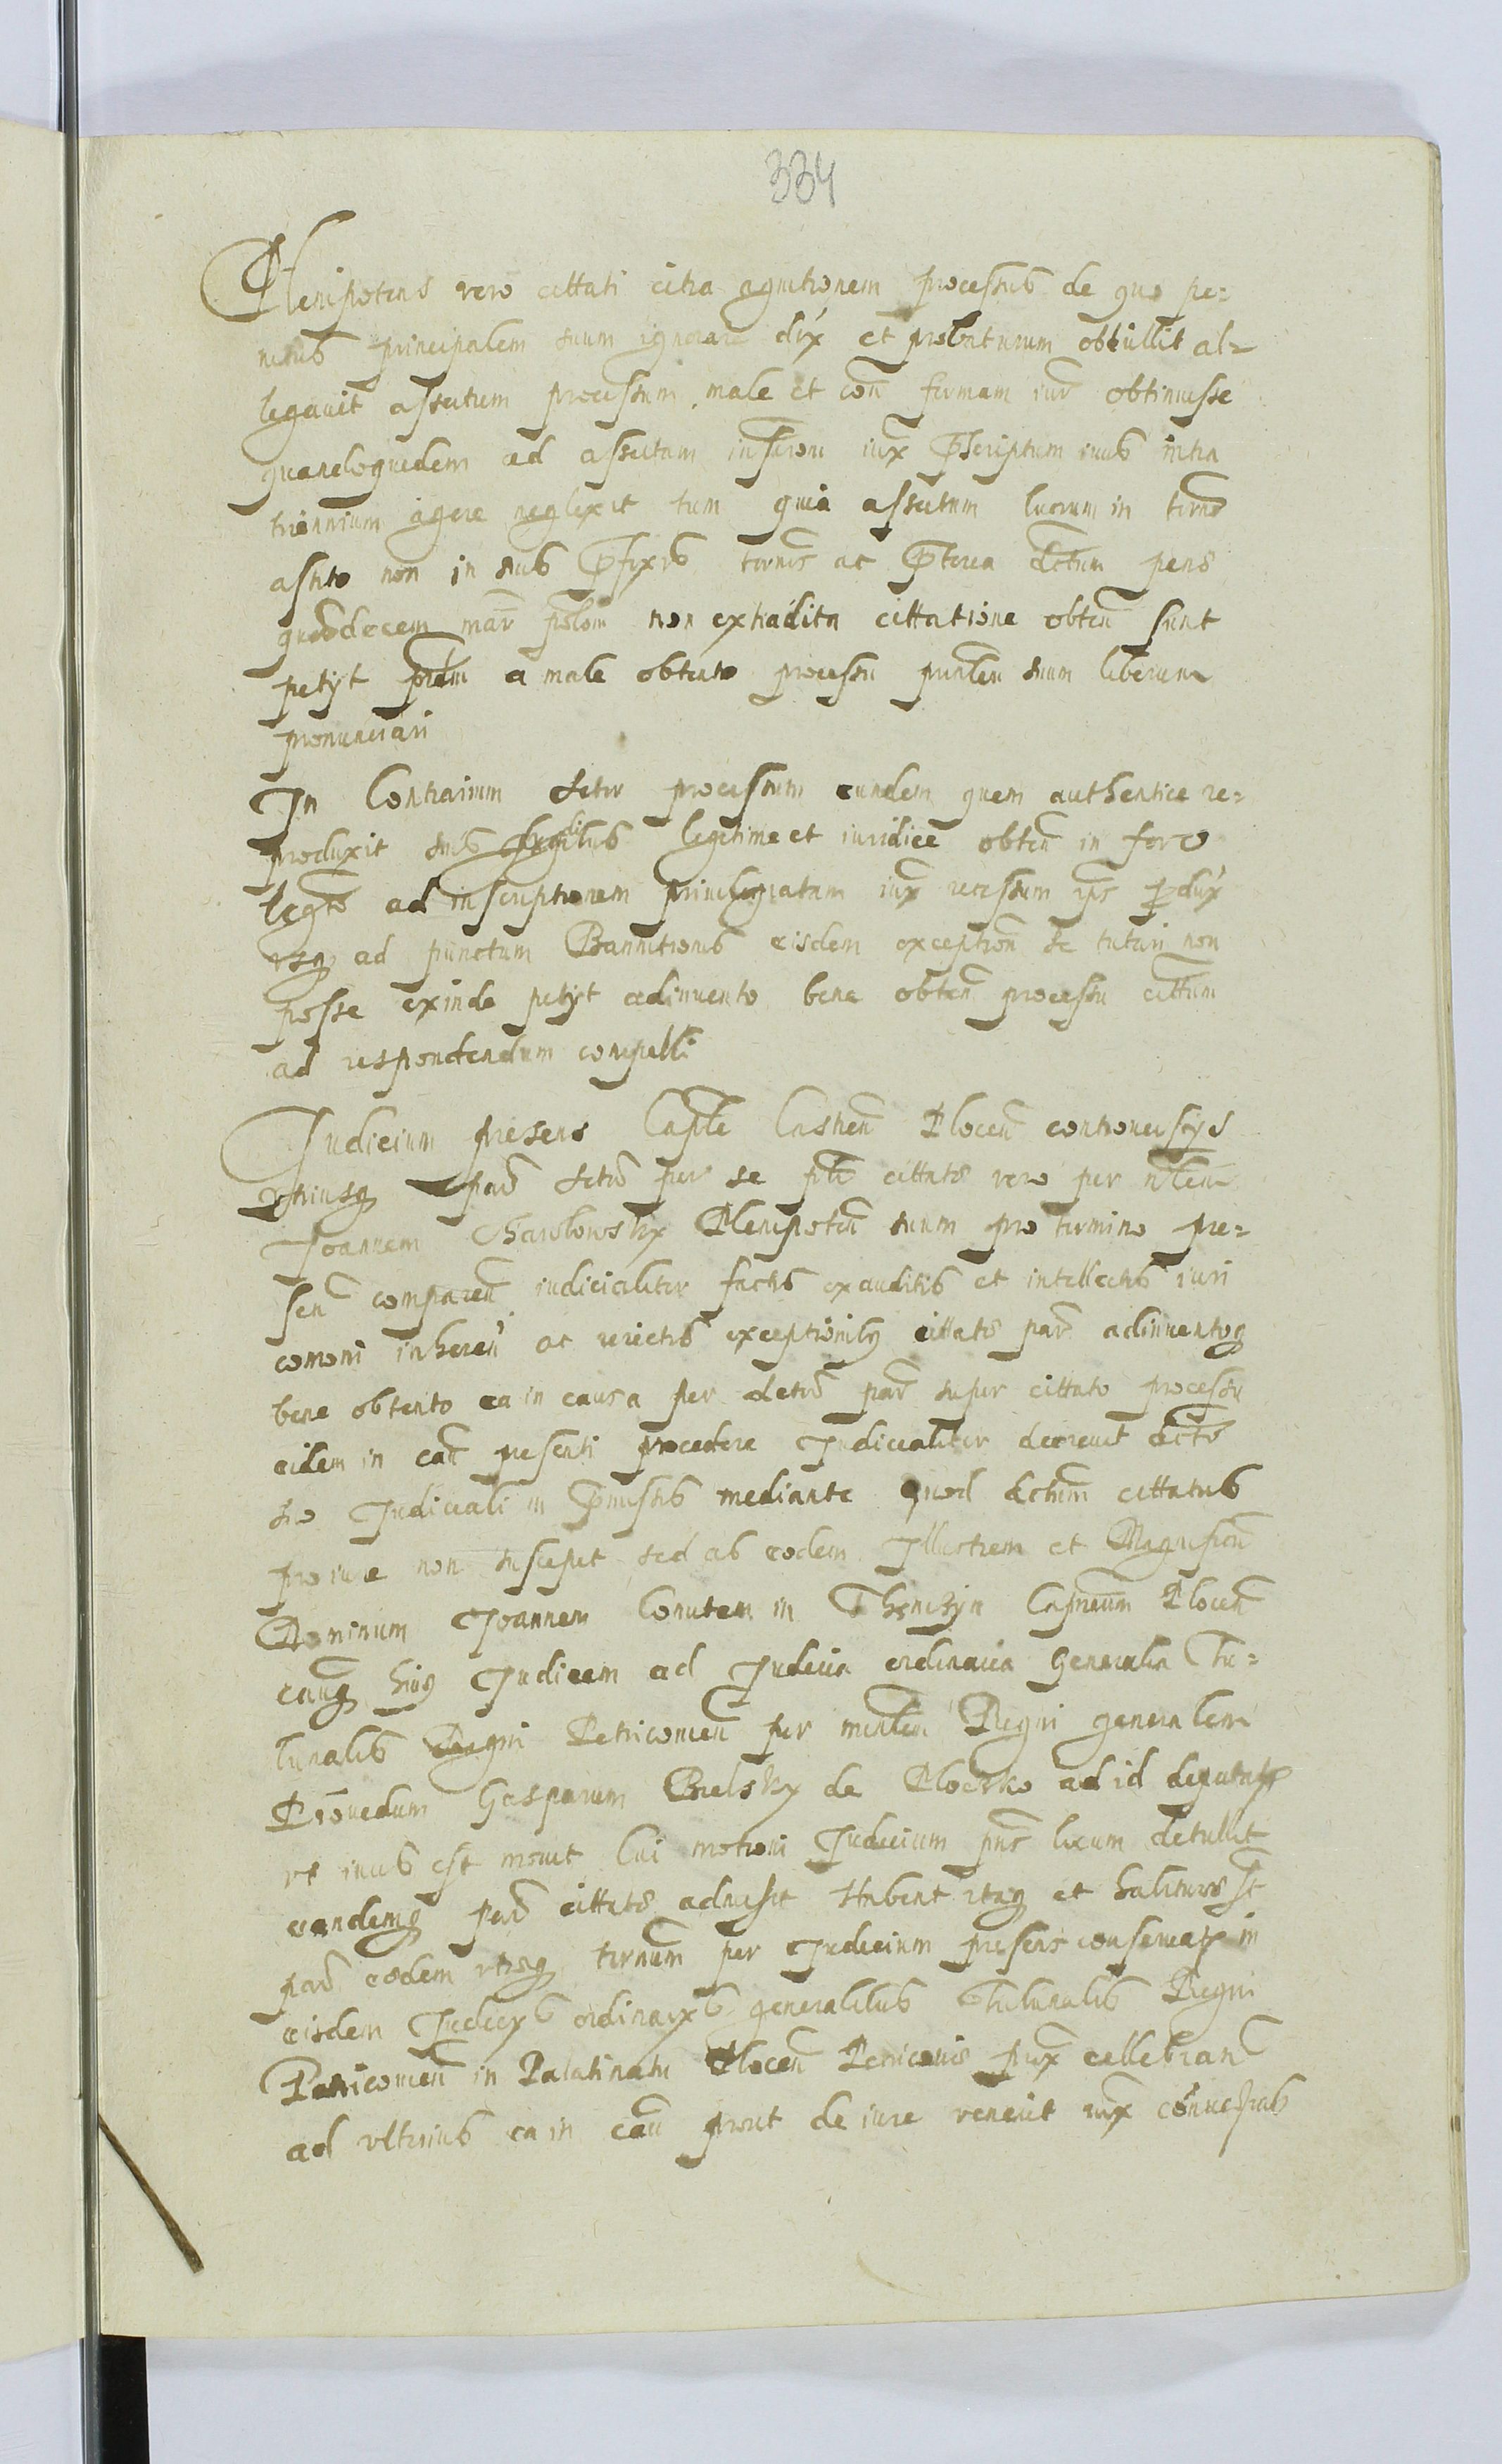 334
Plenipotens vero cittati citra agnitionem processus de quo pe-
nitus principalem suum ignorare dix et probaturum obtullit al-
legavit assertum processum male et con formam iur obtinuisse
quandoquidem ad assertam inscron iux pscriptum iuris intra
triennium agere neglexit tum quia assertum lucrum in termo
astito non in suis pfixis termis ac pterea dectum pens
quatuordecem mar polon non extradita cittatione obten sunt
petyt a male obtento processu prnlem suum liberum
pronunciari
In Contrarium Actor processum eundem quem authentice re-
produxit suis gradibus legitime et iuridice obten in foro
legto ad inscriptionem privilegiatam iux recessum ips pdux
usq ad punctum Bannitionis eisdem exception se tutari non
posse exinde petyt adinvento bene obten processu cittum
ad respondendum compelli
Judicium presens Caple Castren Plocen controversys
utriusq par Actor per se ple cittato vero per nblem
Joannem Plenipoten suum pro termino pre-
sen comparen iudicialiter factis exauditis et intellectis iuri
comoni inheren ac reiectis exceptionibq cittato par adinventoq
bene obtento ea in causa per Actor par super cittato processu
eidem in cau presenti procedere Judicialiter decrevit decto
suo Judiciali in pmissis mediante Quod dectum cittatus
pro iure non suscepit sed ab eodem Illustrem et Magnificu
Dominum Joannem Comitem in Thenczyn Capneum Plocen
cauq huiq Judicem ad Judicia ordinaria Generalia Tri-
bunalis Regni Petricovien per minlem Regni generalem
Providum Gasparum Bielsky de Ploczko ad id deputat
ut iuris est movit Cui motioni Judicium pns locum detullit
eandemq par cittato admisit Habent itaq et habituros st
par eodem utrsq termum per Judicium presens conservat in
eisdem Judicys ordinarys generalibus Tribunalis Regni
Petricovien in Palatinatu Plocen Petricovie prox cellebran
ad ulterius ea in cau prout de iure venerit